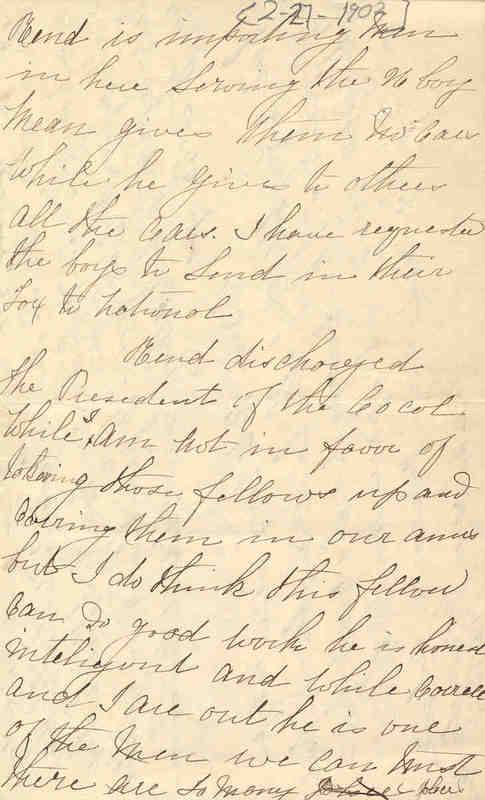 [2-27-1902]
Rend is importing men
in here serving the N boy
mean gives them no cars
While he gives to others
all the cars. I have requested
the boys to send in their
tax to national
Rend discharged
the President of the Local
While I am not in favor of
taking those fellows up and
caring them in our arms
but I do think this fellow
can do good work he is honest
inteligent and while
and I are out he is one
of the men we can trust
there are so many